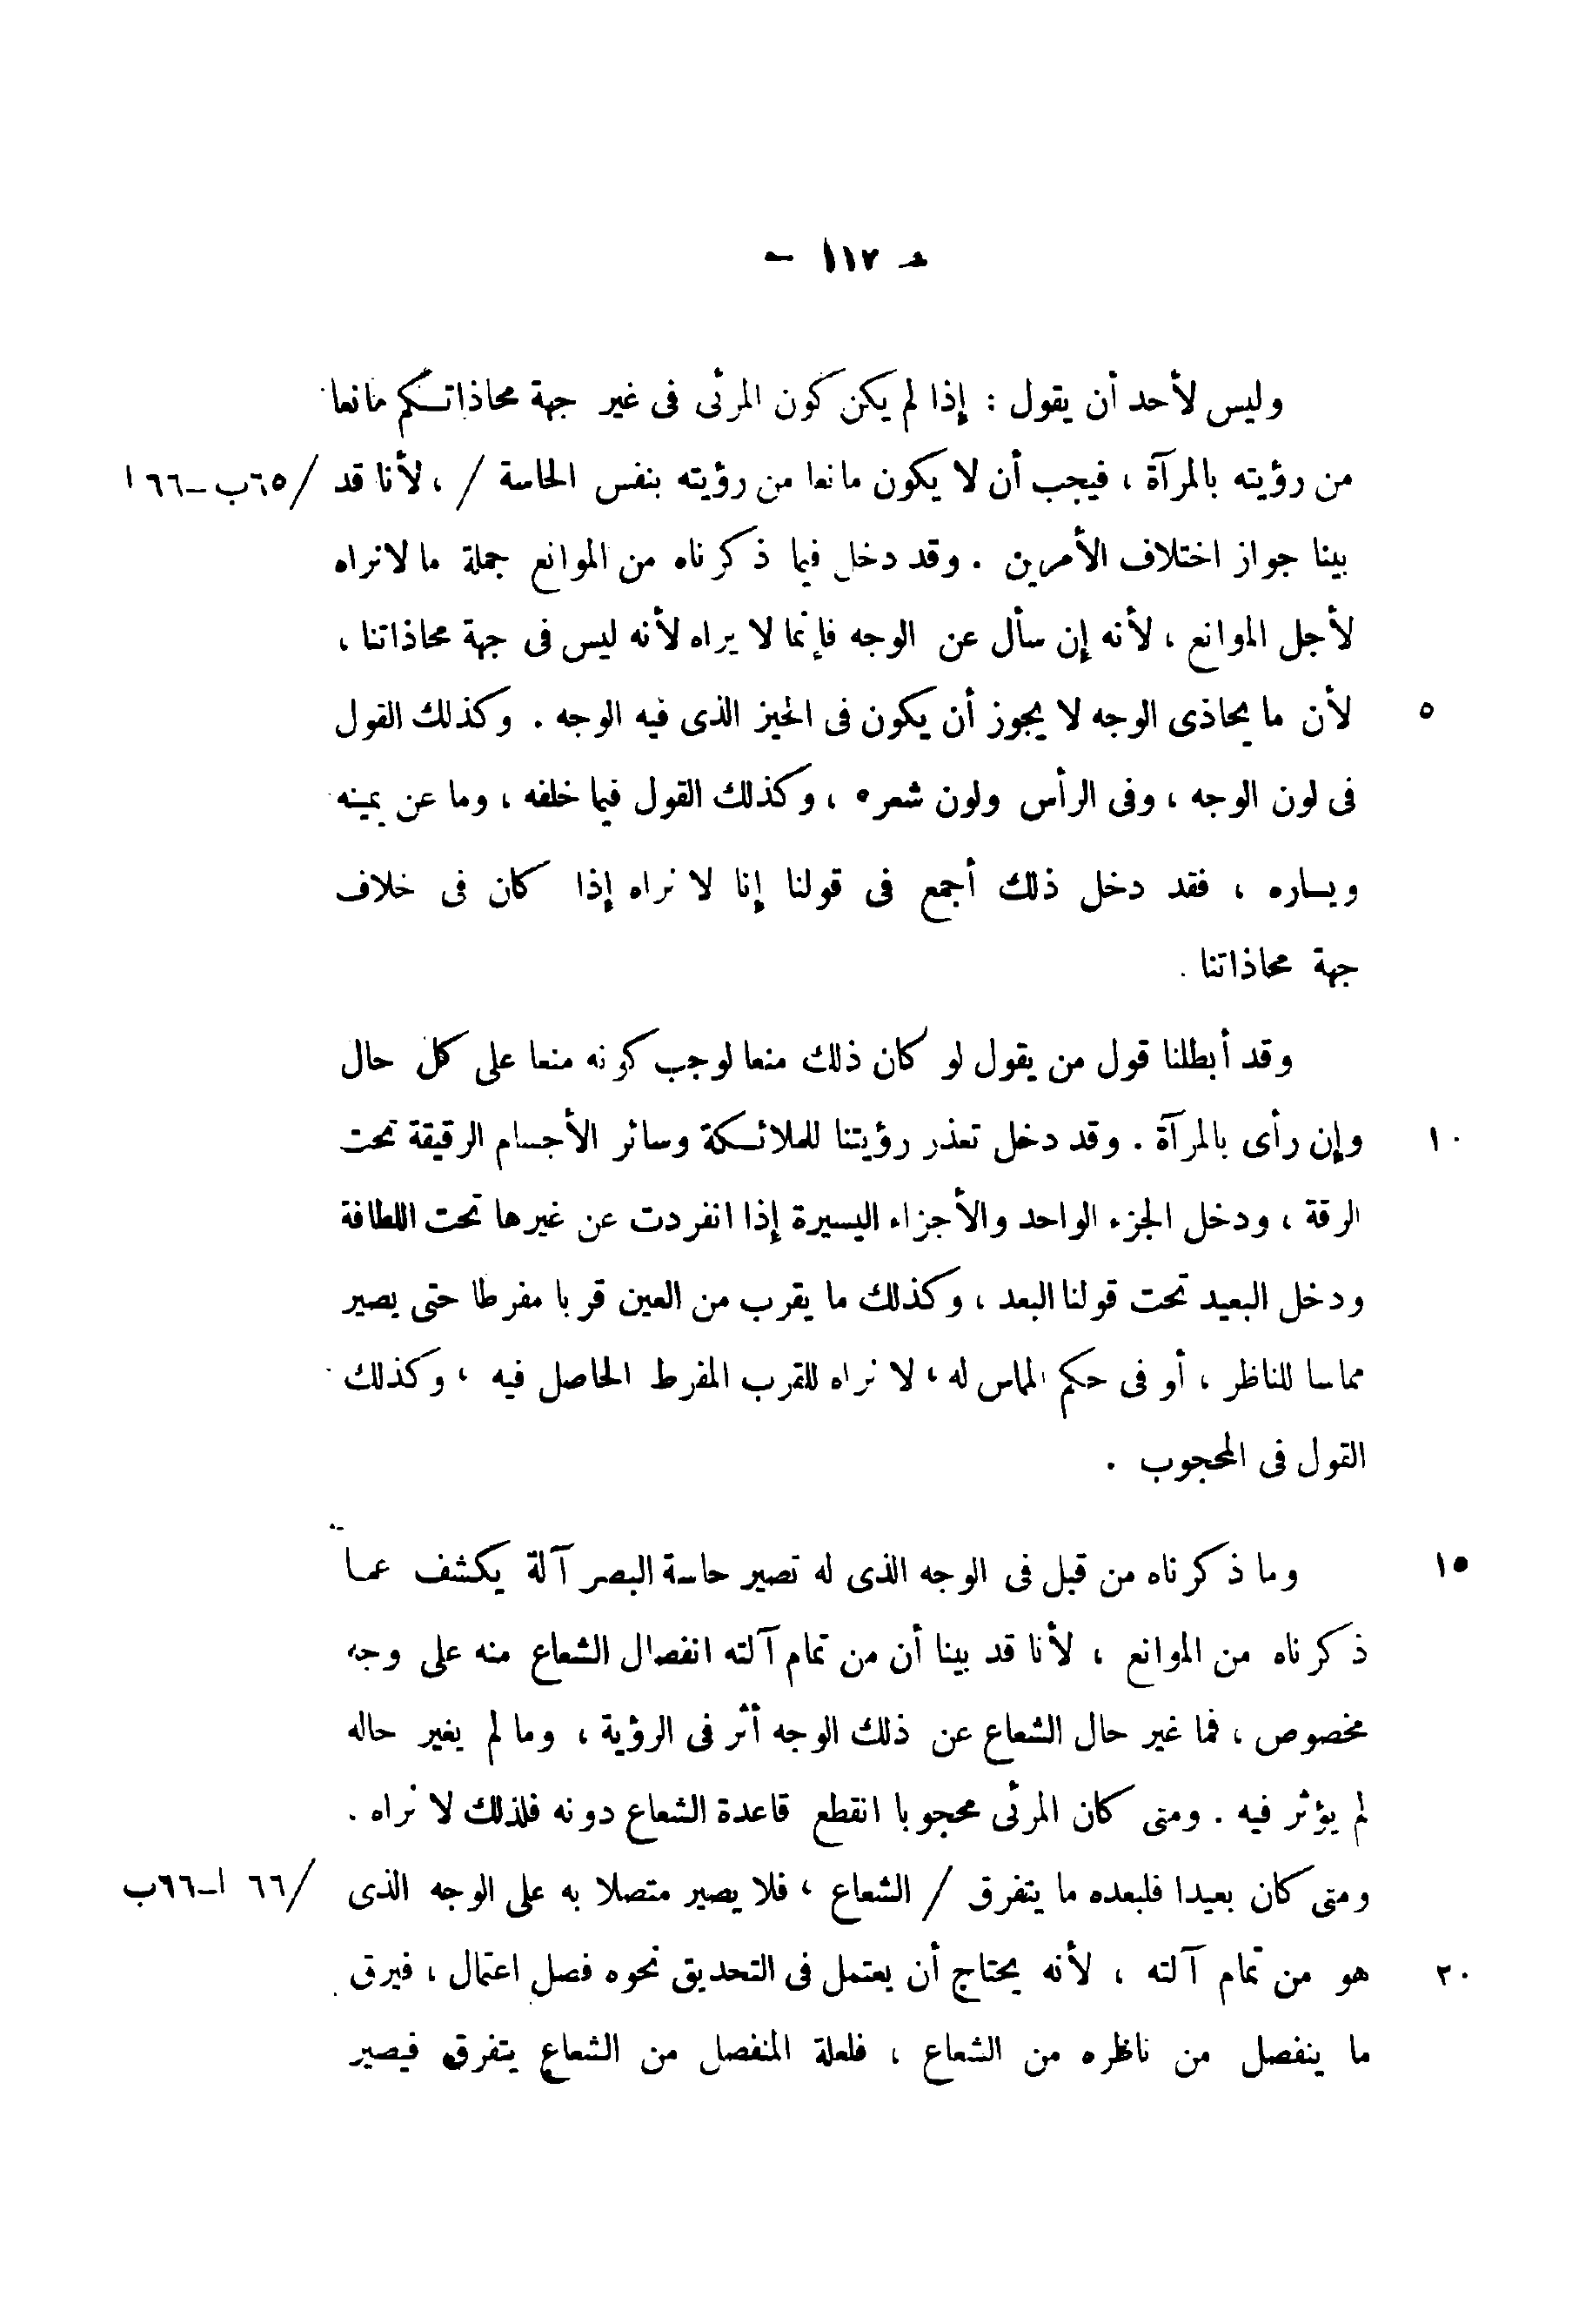 - ١١٧ -
وليس لأحد أن يقول : إذا لم يكن كون المرئى فى غير جهة محاذاتكم مانعا
من رؤيته بالمرآة ، فيجب أن لا يكون مانعا من رؤيته بنفس الحاسة / ، لأنا قد /٦٥ب-٦٦ ا
بينا جواز اختلاف الأمرين . وقد دخل فيما ذكرناه من الموانع جملة ما لا نراه
لأجل الموانع ، لأنه إن سأل عن الوجه فإنما لا يراه لأنه ليس فى جهة محاذاتنا ،
٥ لأن ما يحاذى الوجه لا يجوز أن يكون فى الحيز الذى فيه الوجه . وكذلك القول
فى لون الوجه ، وفى الرأس ولون شعره ، وكذلك القول فيما خلفه ، وما عن يمينه
ويساره ، فقد دخل ذلك أجمع فى قولنا إنا لا نراه إذا كان فى خلاف
جهة محاذاتنا .
وقد أبطلنا قول من يقول لو كان ذلك منعا لوجب كونه منعا على كل حال
١٠ وإن رأى بالمرآة . وقد دخل تعذر رؤيتنا للملائكة وسائر الأجسام الرقيقة تحت
الرقة ، ودخل الجزء الواحد والأجزاء اليسيرة إذا انفردت عن غيرها تحت اللطافة
ودخل البعيد تحت قولنا البعد ، وكذلك ما يقرب من العين قربا مفرطا حتى يصير
مماسا للناظر ، أو فى حكم المماس له ، لا نراه للقرب المفرط الحاصل فيه ، وكذلك
القول فى المحجوب .
١٥ وما ذكرناه من قبل فى الوجه الذى له تصير حاسة البصر آلة يكشف عما
ذكرناه من الموانع ، لأنا قد بينا أن من تمام آلته انفصال الشعاع منه على وجه
مخصوص ، فما غير حال الشعاع عن ذلك الوجه أثر فى الرؤية ، وما لم يغير حاله
لم يؤثر فيه . ومتى كان المرئى محجوبا انقطع قاعدة الشعاع دونه فلذلك لا نراه .
ومتى كان بعيدا فلبعده ما يتفرق / الشعاع ، فلا يصير متصلا به على الوجه الذى /٦٦ ا-٦٦ب
٢٠ هو من تمام آلته ، لأنه يحتاج أن يعتمل فى التحديق نحوه فصل اعتمال ، فيرق
ما ينفصل من ناظره من الشعاع ، فلعلة المنفصل من الشعاع يتفرق فيصير